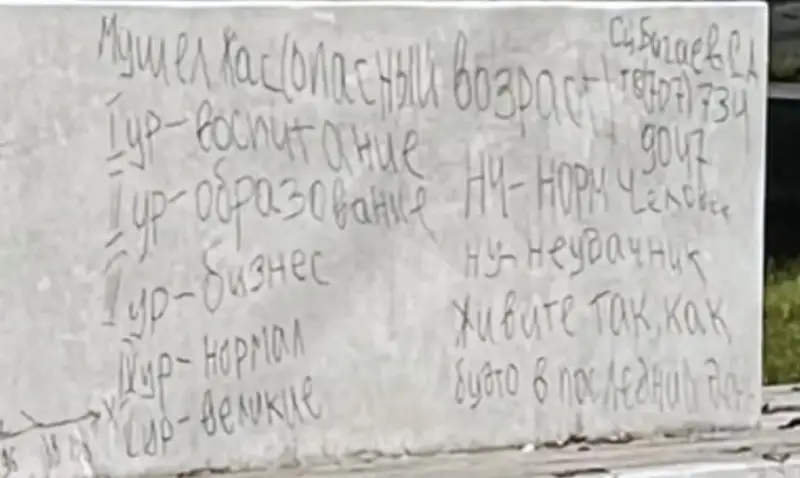 Мушел жас(опасный возраст)
I ур-воспитание
II ур-образование
III ур-бизнес
IV ур-нормал
V ур-великие
Сыбигаев
т8(707)734
9047
НЧ-НОРМ человек
НУ-неудачник
живите так, как
будто в последний день